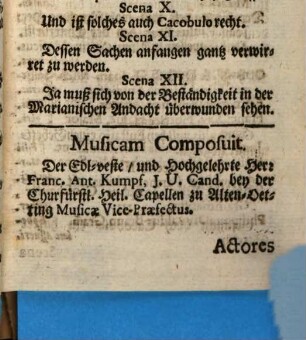 Scena X.
Und ist solches auch Cacobulo recht.
Scena XI.
Dessen Sachen anfangen gantz verwir-
ret zu werden.
Scena XII.
Ja muß sich von der Beständigkeit in der
Marianischen Andacht überwunden sehen.
Musicam Composuit.
Der Edl-veste / und Hochgelehrte Herr
Franc. Ant. Kumpf, J. U. Cand. bey der
Churfürstl. Heil. Capellen zu Alten-Oet-
ting Musicæ Vice-Præfectus.
Actores